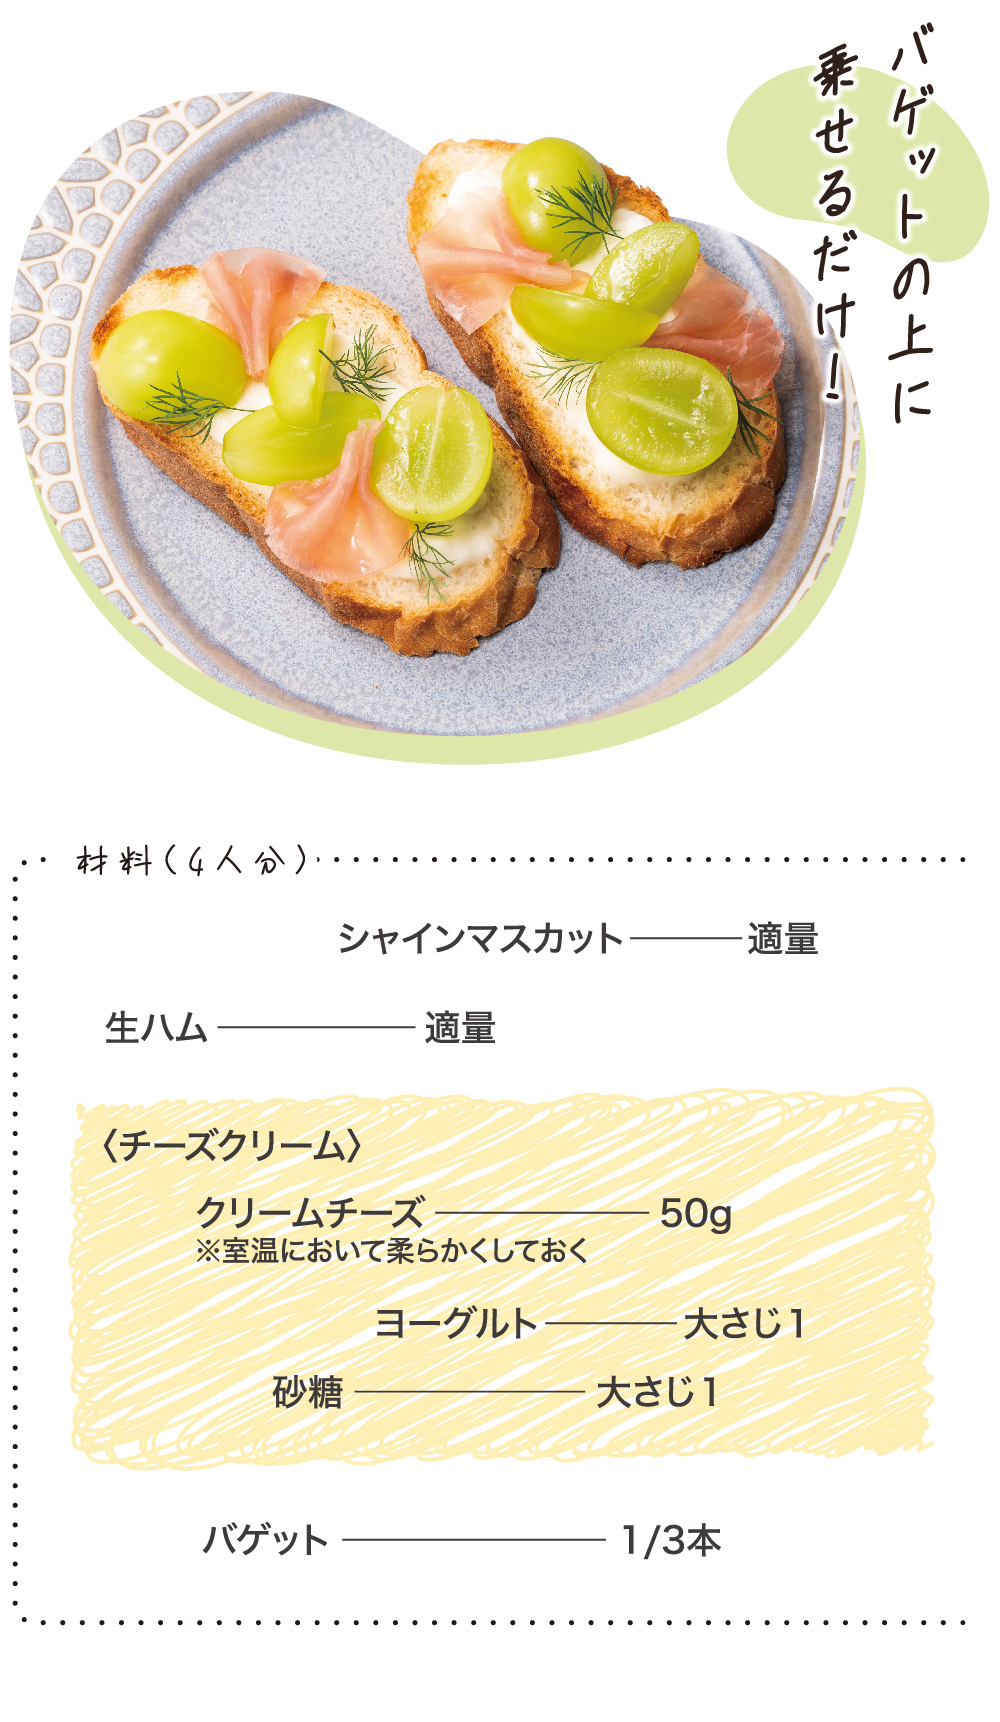 バゲットの上に
乗せるだけ!
材料(4人分)
シャインマスカット 適量
生ハム 適量
〈チーズクリーム〉
クリームチーズ 50g
※室温において柔らかくしておく
ヨーグルト 大さじ1
砂糖 大さじ1
バゲット 1/3本